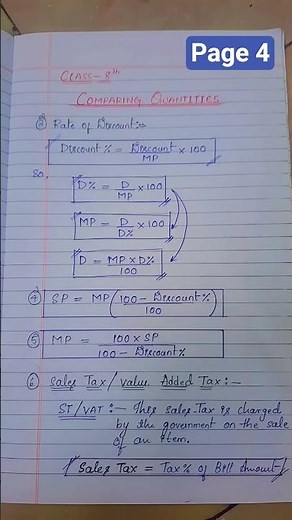 Page 4
CLASS - 8th
COMPARING QUANTITIES
③ Rate of Discount:-
Discount % = Discount / MP × 100
So,
D% = D / MP × 100
MP = D / D% × 100
D = MP × D% / 100
④ SP = MP (100 - Discount% / 100)
⑤ MP = 100 × SP / 100 - Discount%
⑥ Sales Tax / Value Added Tax :-
ST/VAT :- This sales Tax is charged
by the government on the sale
of an item.
Sales Tax = Tax% of Bill Amount